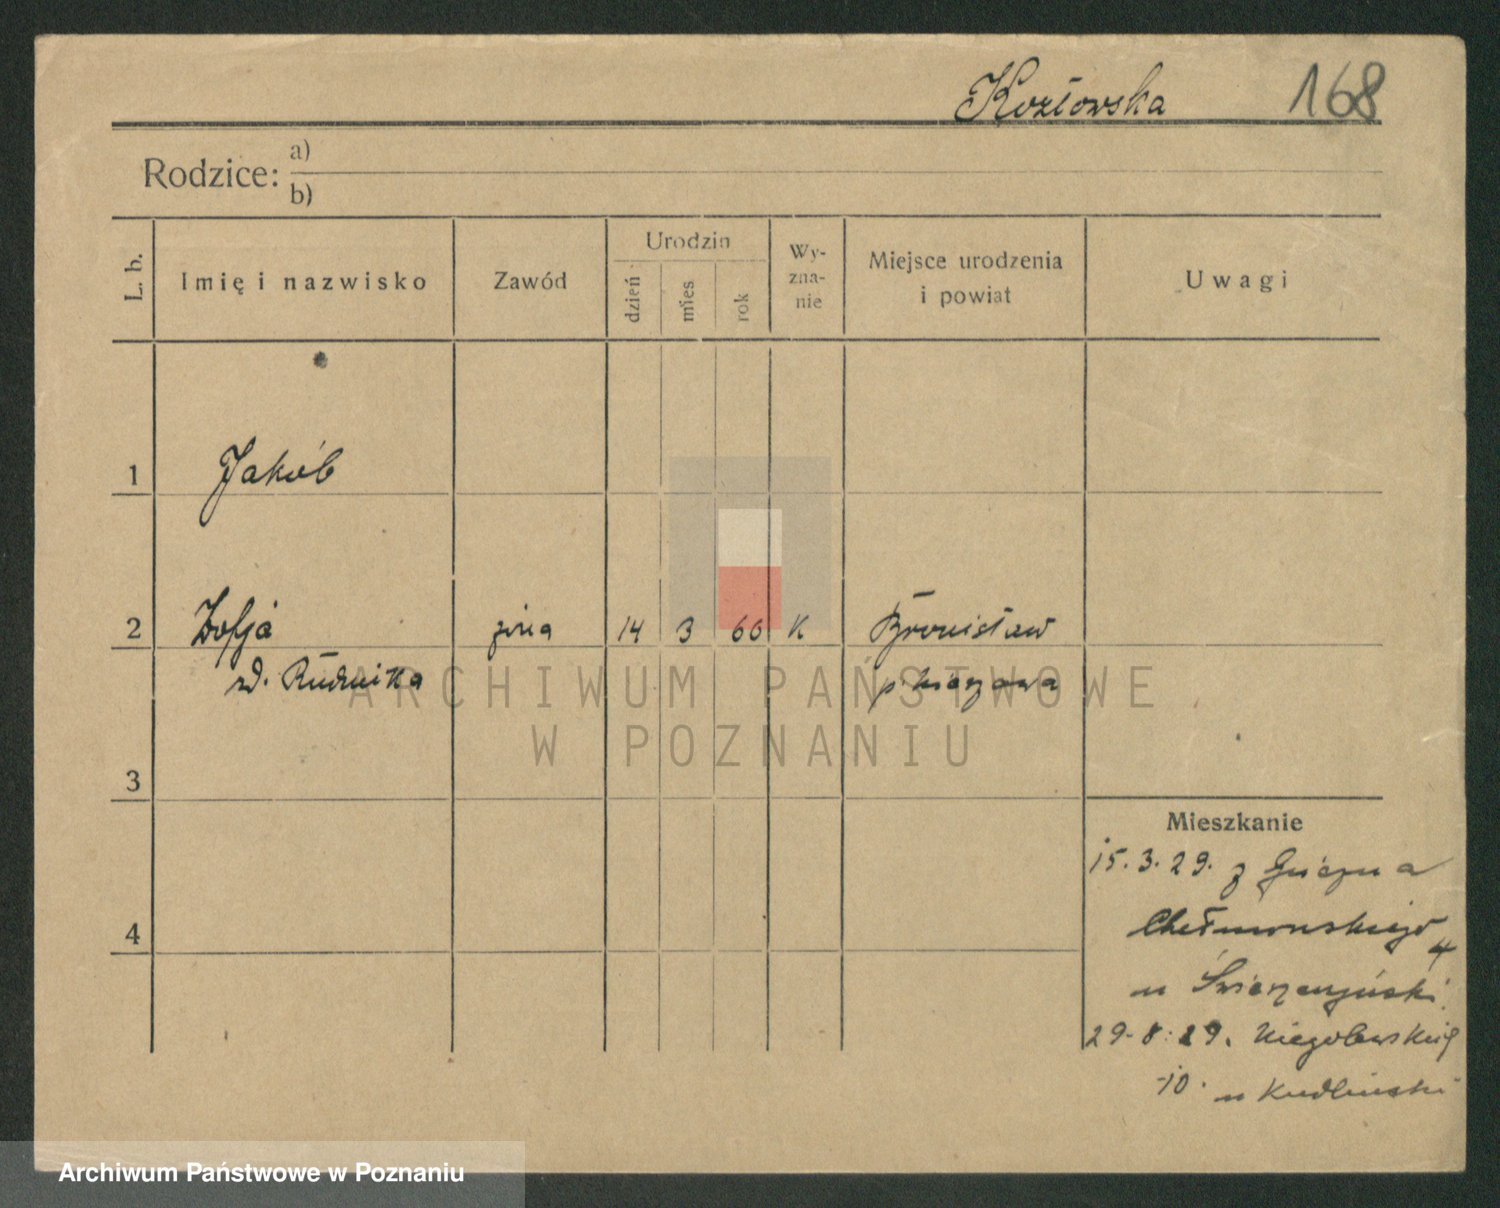 Kozłowska 168
Rodzice: a)
b)
L. b.
Imię i nazwisko
Zawód
Urodzin
dzień
mies
rok
Wy-
zna-
nie
Miejsce urodzenia
i powiat
Uwagi
1 Jakób
2 Zofja 14 3 66 K Bronisław
zd. Rudnika p.
3
4
Mieszkanie
15.3.29. z Gniezna
Chełmońskiego 4
u
29.8.29. Niegolewskich
10. u Kudliński
ARCHIWUM PAŃSTWOWE
W POZNANIU
Archiwum Państwowe w Poznaniu